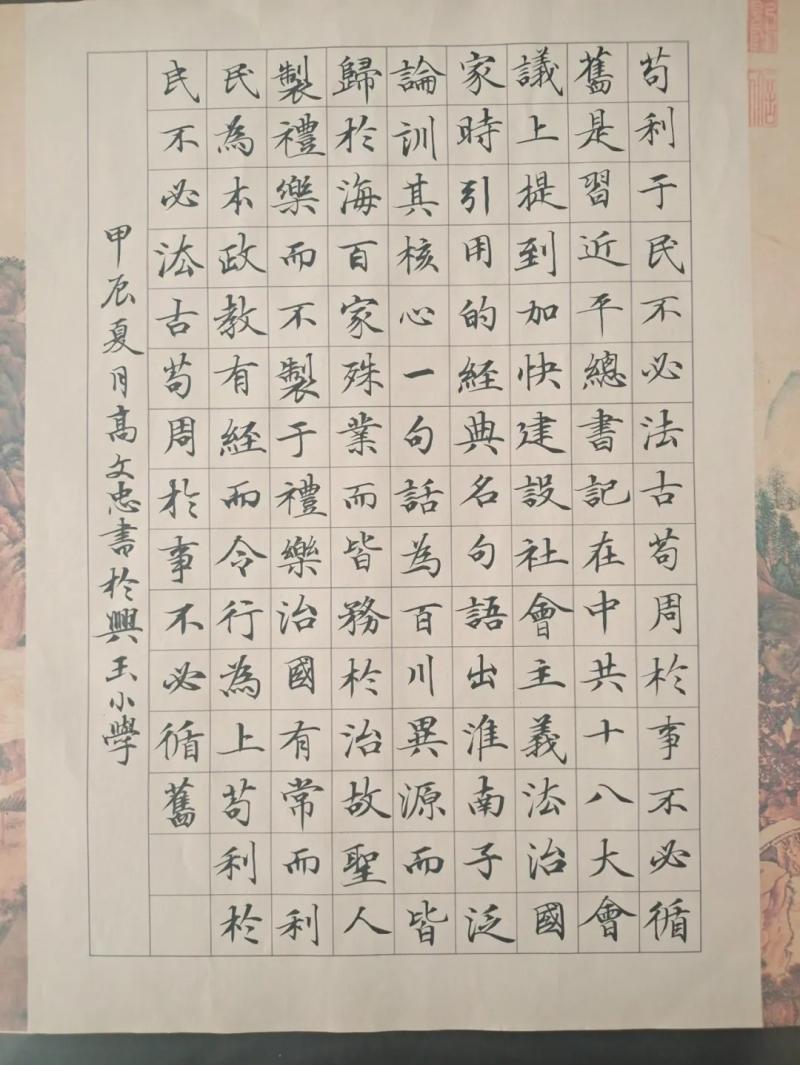 苟利于民不必法古苟周於事不必循
舊是習近平總書記在中共十八大會
議上提到加快建設社會主義法治國
家時引用的經典名句語出淮南子泛
論訓其核心一句話為百川異源而皆
歸於海百家殊業而皆務於治故聖人
製禮樂而不製于禮樂治國有常而利
民為本政教有經而令行為上苟利於
民不必法古苟周於事不必循舊
甲辰夏月高文忠書於興王小學